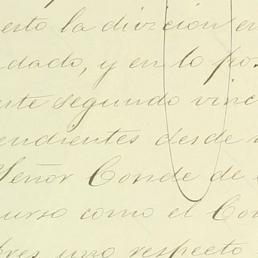 esto la division en
dado, y en lo po
este segundo vinc
endientes desde
Señor Conde de
urso como el Co
bres uno respecto